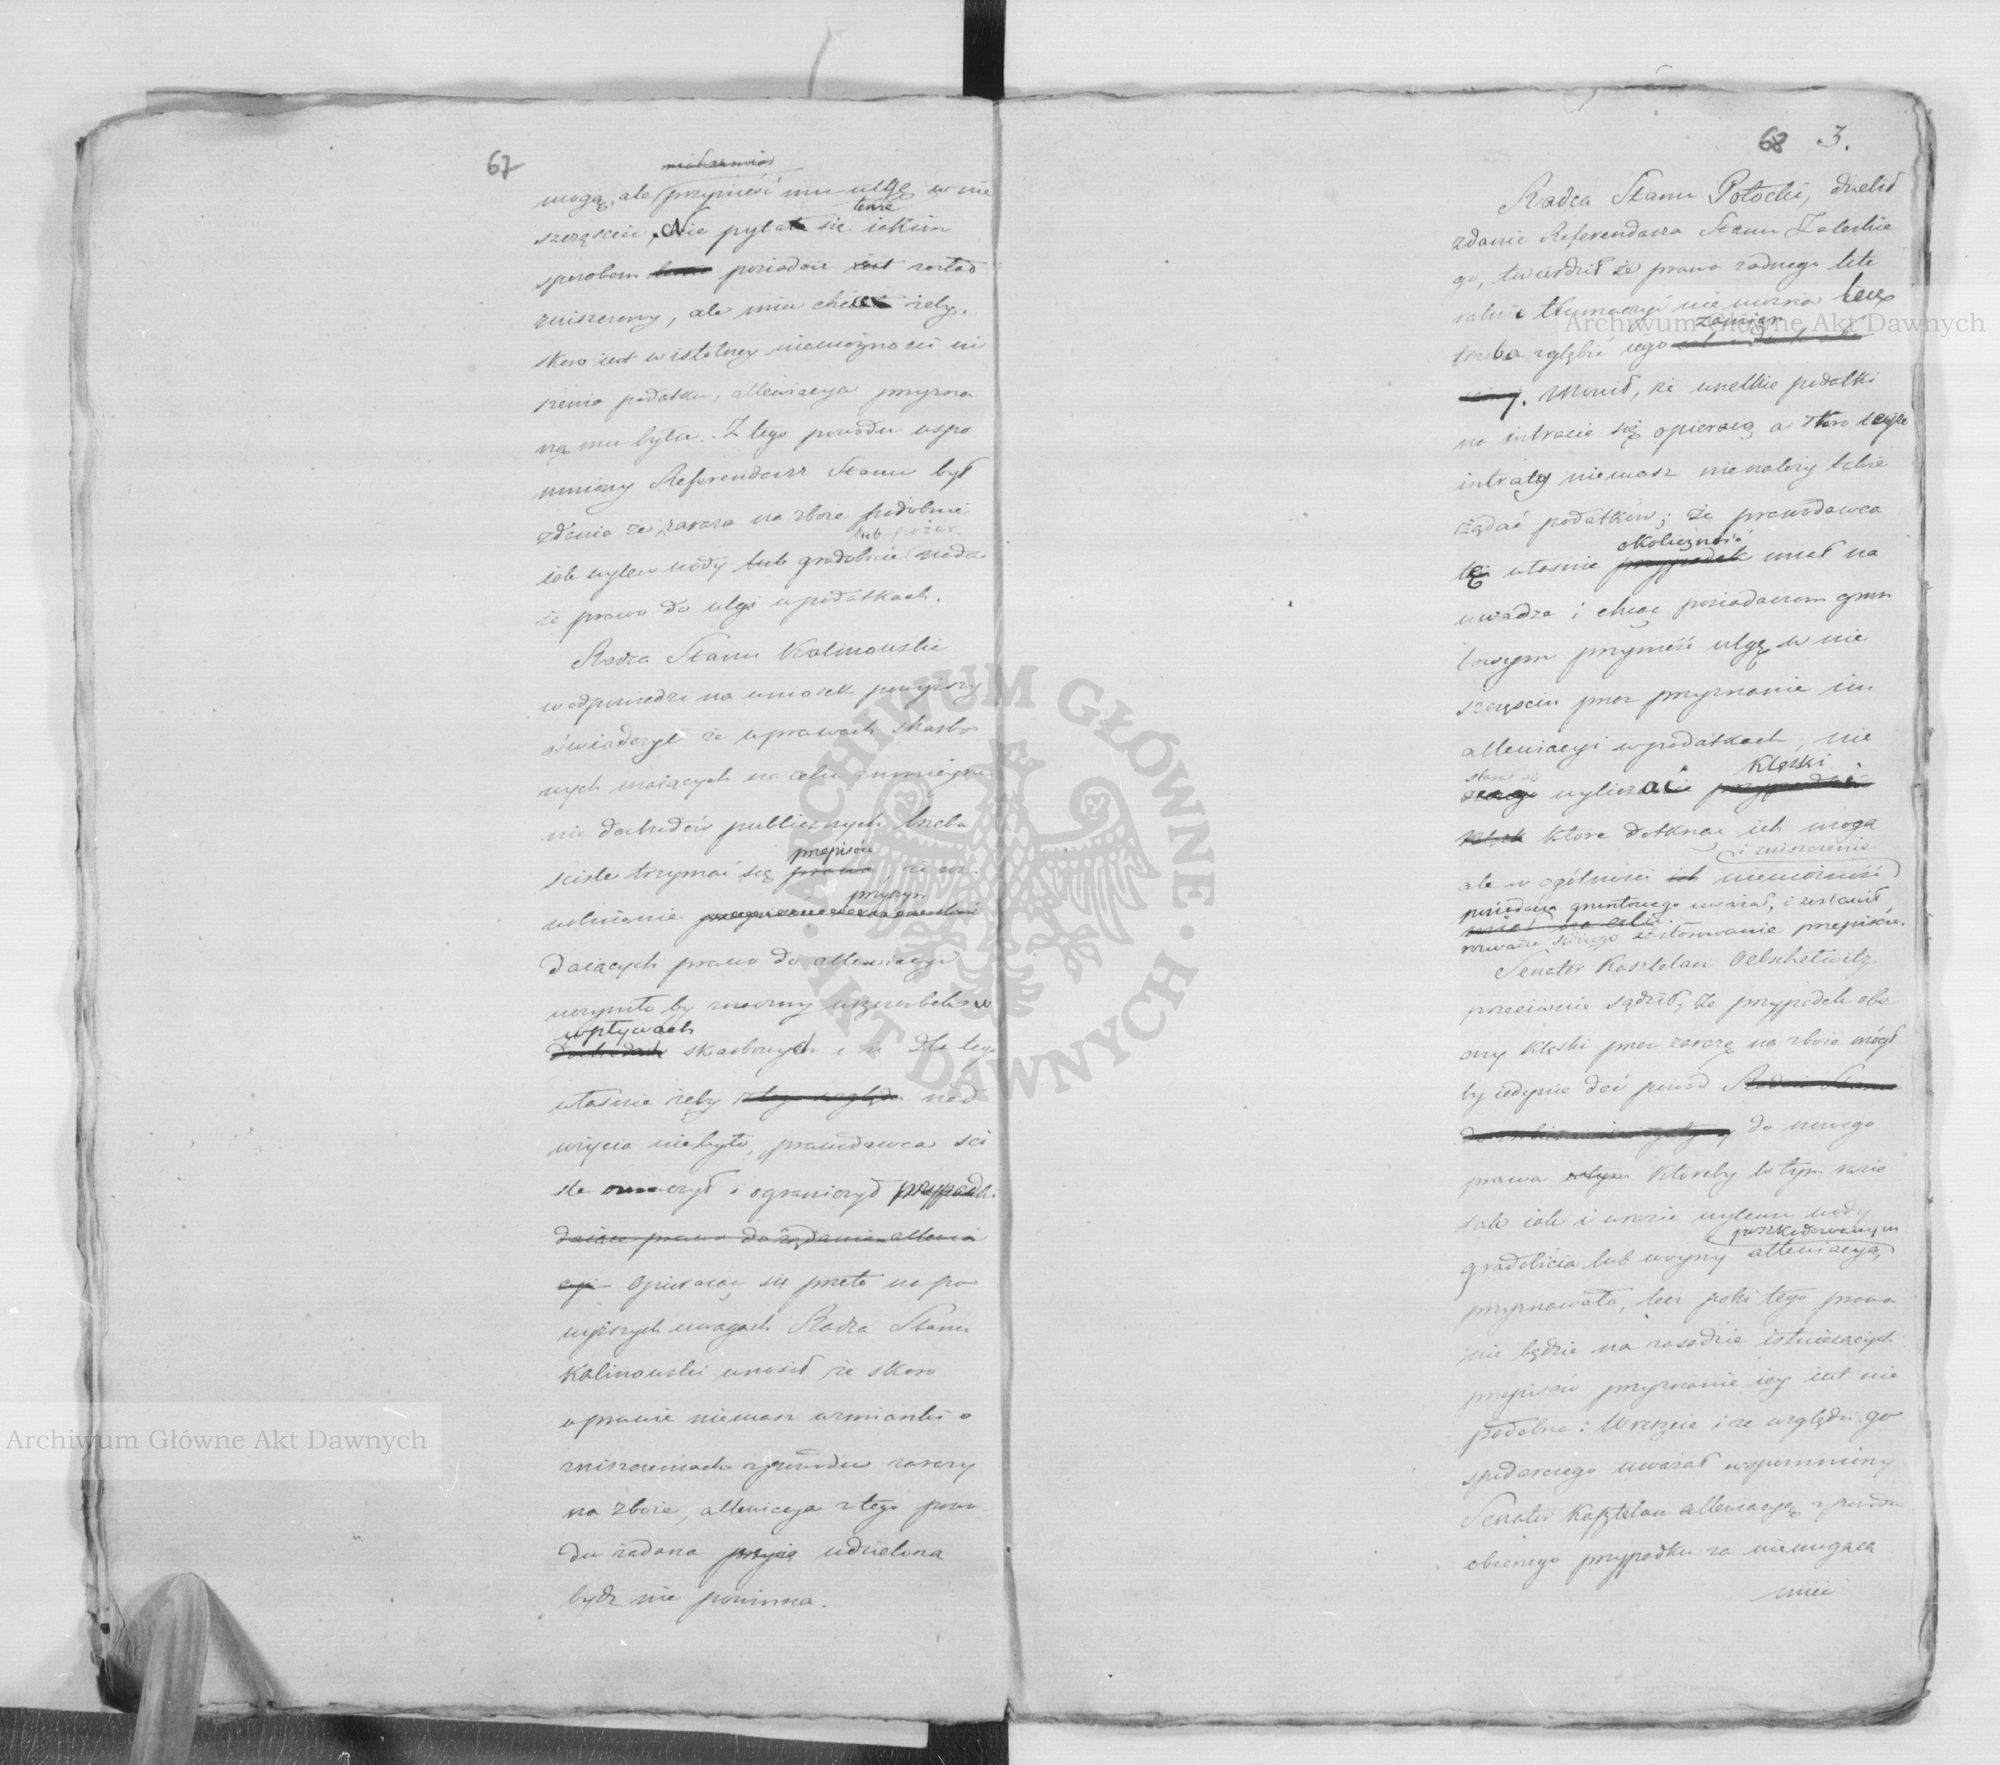 67
mogą, ale przynieść mu ulgę w nie
szczęściu, Nie pyta się tenże iakim
sposobem posiadacz został
zniszczony, ale mieć chce żeby,
skoro iest w istotney niemożności ui
szczenia podatku, allewiacya przyzna
ną mu była. Z tego powodu wspo
mniony Referendarz Stanu był
zdania że zaraza na zboże podobnie
lub pożar
iak wylew wody gradobicie nada
ie prawo do ulgi w podatkach.
Radca Stanu Kalinowski
w odpowiedzi na wniosek powyższy
oświadczył że w prawach skarbo
wych maiących na celu zmnieysze
nie dochodów publicznych trzeba
przepisów
ściśle trzymać się prawa, że roz
przyczyn
wolnienie
daiących prawo do allewiacyi
uczyniło by znaczny uszczerbek w
wpływach
dochodach skarbowych i że dla tego
właśnie żeby nad
użycia niebyło, prawodawca ści
śle oznaczył i ograniczył przypadki
daiące prawo do żądania allewia
cyi Opieraiąc się przeto na po
wyższych uwagach Radca Stanu
Kalinowski wnosił że skoro
w prawie niemasz wzmianki o
zniszczeniach z powodu zarazy
na zboże, allewiacya z tego powo
du żądana udzielona
bydź nie powinna.
68 3.
Radca Stanu Potocki, dzielił
zdanie Referendarza Stanu Zaleskie
go, twierdził że prawa żadnego lite
ralnie tłumaczyć nie można lecz
zamiar
trzeba zgłębić iego
Mówił, że wszelkie podatki
na intracie się opieraią a skoro teyże
intraty niemasz nienależy także
żądać podatków; że prawodawca
okoliczność
tę właśnie przypadek miał na
uwadze i chcąc posiadaczom grun
towym przynieść ulgę w nie
szczęściu przez przyznanie im
allewiacyi w podatkach, nie
starał się Klęski
wyliczać
które dotknąć ich mogą
i zniszczenie
ale w ogólności niemożność
posiadacza gruntowego uważał, i zostawił
miał na celu.
rozwadze stosowanie przepisów.
Senator Kasztelan Oebschelwitz
przeciwnie sądził, że przypadek obe
cny klęski przez zarazę na zboże mógł
by iedynie dać powód
do nowego
prawa któreby w tym razie
tak iak i w razie wylewu wody
poszkodowanym
gradobicia lub woyny allewiacyą
przyznawało, lecz póki tego prawa
nie będzie na zasadzie istnieiących
przepisów przyznanie iey iest nie
podobne: Wreszcie i ze względu go
spodarczego uważał wspomniony
Senator Kasztelan allewiacyą z powodu
obecnego przypadku za niemogącą
mieć
Archiwum Główne Akt Dawnych
Archiwum Główne Akt Dawnych
ARCHIWUM GŁÓWNE · AKT DAWNYCH ·